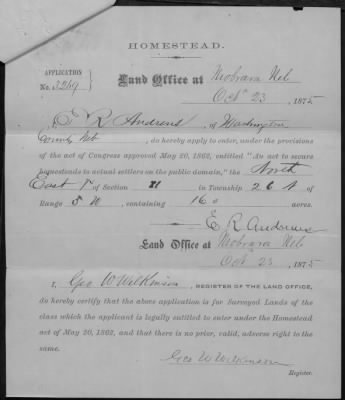 HOMESTEAD.
APPLICATION
No. 3269
Land Office at Niobrara Neb
Oct 23, 1875
I, E R Andrews, of Washington
County Neb, do hereby apply to enter, under the provisions
of the act of Congress approved May 20, 1862, entitled "An act to secure
homesteads to actual settlers on the public domain," the North
East 1/4 of Section 21 in Township 26 N of
Range 5 W, containing 160 acres.
E R Andrews
Land Office at Niobrara Neb
Oct 23, 1875
I, Geo W Wilkinson, REGISTER OF THE LAND OFFICE,
do hereby certify that the above application is for Surveyed Lands of the
class which the applicant is legally entitled to enter under the Homestead
act of May 20, 1862, and that there is no prior, valid, adverse right to the
same.
Geo W Wilkinson
Register.